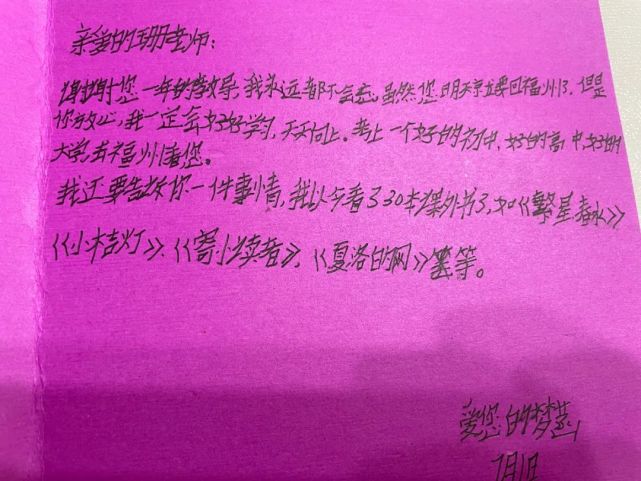 亲爱的珊老师:
谢谢您一年的教导,我永远都不会忘。虽然您明天就要回福州了,但是
你放心,我一定会好好学习,天天向上。考上一个好的初中,好的高中,好的
大学,去福州看您。
我还要告诉你一件事情,我以今看了30本课外书了,如《繁星春水》
《小桔灯》、《寄小读者》,《夏洛的网》等等。
爱您的梦
7月1日